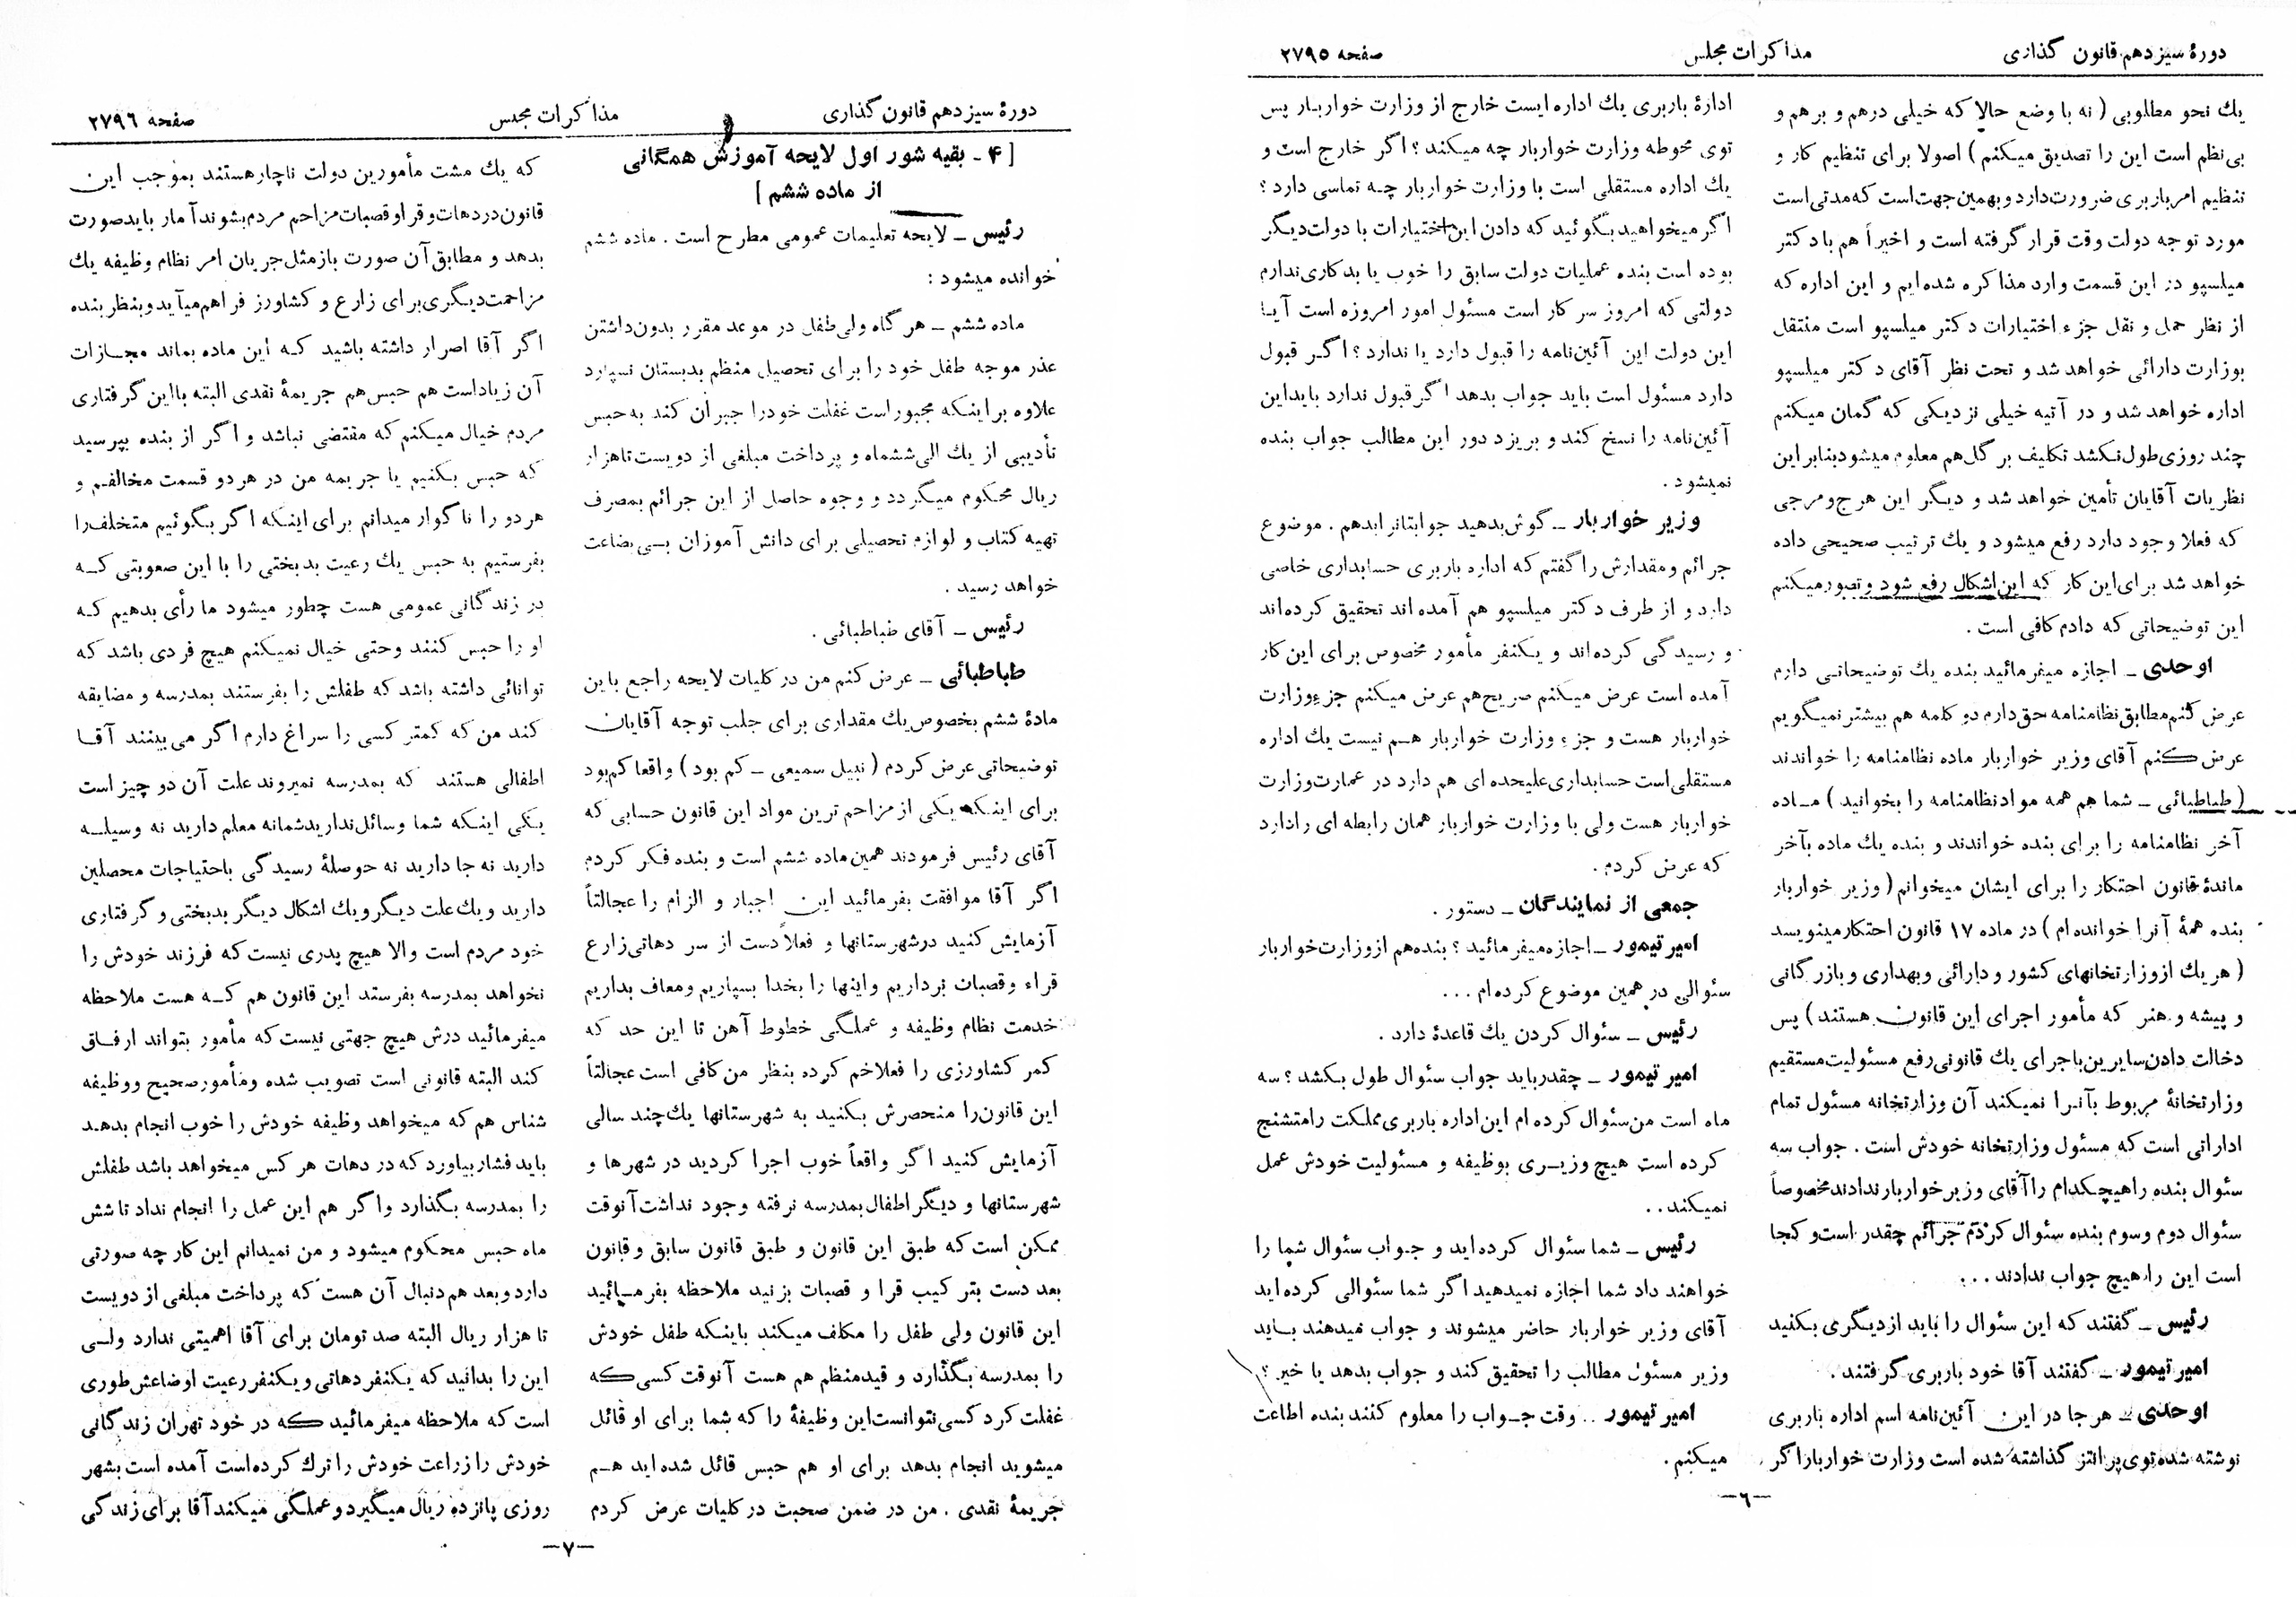 دورهٔ سیزدهم قانون گذاری
مذاکرات مجلس
صفحه ۲۷۹۵
یك نحو مطلوبی ( نه با وضع حالا که خیلی درهم و برهم و
بی‌نظم است این را تصدیق میکنم ) اصولا برای تنظیم کار و
تنظیم امر باربری ضرورت دارد و بهمین جهت است که مدتی است
مورد توجه دولت وقت قرار گرفته است و اخیراً هم با دکتر
میلسپو در این قسمت وارد مذاکره شده‌ایم و این اداره که
از نظر حمل و نقل جزء اختیارات دکتر میلسپو است منتقل
بوزارت دارائی خواهد شد و تحت نظر آقای دکتر میلسپو
اداره خواهد شد و در آتیه خیلی نزدیکی که گمان میکنم
چند روزی طول نکشد تکلیف بر گل هم معلوم میشود بنابراین
نظریات آقایان تأمین خواهد شد و دیگر این هرج و مرجی
که فعلا وجود دارد رفع میشود و یك ترتیب صحیحی داده
خواهد شد برای این کار که این اشکال رفع شود و تصور میکنم
این توضیحاتی که دادم کافی است .
اوحدی ـ اجازه میفرمائید بنده یك توضیحاتی دارم
عرض کنم مطابق نظامنامه حق دارم دو کلمه هم بیشتر نمیگویم
عرض کنم آقای وزیر خواربار ماده نظامنامه را خواندند
( طباطبائی ـ شما هم همه مواد نظامنامه را بخوانید ) ماده
آخر نظامنامه را برای بنده خواندند و بنده یك ماده بآخر
ماندهٔ قانون احتکار را برای ایشان میخوانم ( وزیر خواربار
بنده همهٔ آنرا خوانده‌ام ) در ماده ۱۷ قانون احتکار مینویسد
( هر یك از وزارتخانهای کشور و دارائی و بهداری و بازرگانی
و پیشه و هنر که مأمور اجرای این قانون هستند ) پس
دخالت دادن سایرین باجرای یك قانونی رفع مسئولیت مستقیم
وزارتخانهٔ مربوط بآنرا نمیکند آن وزارتخانه مسئول تمام
اداراتی است که مسئول وزارتخانه خودش است . جواب سه
سئوال بنده را هیچکدام را آقای وزیر خواربار ندادند مخصوصاً
سئوال دوم و سوم بنده سئوال کردم جرائم چقدر است و کجا
است این را هیچ جواب ندادند . . .
رئیس ـ گفتند که این سئوال را باید از دیگری بکنید
امیر تیمور ـ گفتند آقا خود باربری گرفتند .
اوحدی ـ هر جا در این آئین‌نامه اسم اداره باربری
نوشته شده توی پرانتز گذاشته شده است وزارت خواربار اگر
ادارهٔ باربری یك اداره ایست خارج از وزارت خواربار پس
توی محوطه وزارت خواربار چه میکند ؟ اگر خارج است و
یك اداره مستقلی است با وزارت خواربار چه تماسی دارد ؟
اگر میخواهید بگوئید که دادن این اختیارات با دولت دیگر
بوده است بنده عملیات دولت سابق را خوب یا بد کاری ندارم
دولتی که امروز سر کار است مسئول امور امروزه است آیا
این دولت این آئین‌نامه را قبول دارد یا ندارد ؟ اگر قبول
دارد مسئول است باید جواب بدهد اگر قبول ندارد باید این
آئین‌نامه را نسخ کند و بریزد دور این مطالب جواب بنده
نمیشود .
وزیر خواربار ـ گوش بدهید جوابتانرا بدهم . موضوع
جرائم و مقدارش را گفتم که اداره باربری حسابداری خاصی
دارد و از طرف دکتر میلسپو هم آمده اند تحقیق کرده‌اند
و رسیدگی کرده‌اند و یکنفر مأمور مخصوص برای این کار
آمده است عرض میکنم صریح هم عرض میکنم جزء وزارت
خواربار هست و جزء وزارت خواربار هم نیست یك اداره
مستقلی است حسابداری علیحده ای هم دارد در عمارت وزارت
خواربار هست ولی با وزارت خواربار همان رابطه ای را دارد
که عرض کردم .
جمعی از نمایندگان ـ دستور .
امیر تیمور ـ اجازه میفرمائید ؟ بنده هم از وزارت خواربار
سئوالی در همین موضوع کرده‌ام . . .
رئیس ـ سئوال کردن یك قاعدهٔ دارد .
امیر تیمور ـ چقدر باید جواب سئوال طول بکشد ؟ سه
ماه است من سئوال کرده ام این اداره باربری مملکت را متشنج
کرده است هیچ وزیری بوظیفه و مسئولیت خودش عمل
نمیکند . .
رئیس ـ شما سئوال کرده اید و جواب سئوال شما را
خواهند داد شما اجازه نمیدهید اگر شما سئوالی کرده اید
آقای وزیر خواربار حاضر میشوند و جواب نمیدهند باید
وزیر مسئول مطالب را تحقیق کند و جواب بدهد یا خیر ؟
امیر تیمور . . وقت جواب را معلوم کنند بنده اطاعت
میکنم .
ـ۶ـ
دورهٔ سیزدهم قانون گذاری
مذاکرات مجلس
صفحه ۲۷۹۶
[ ۴ ـ بقیه شور اول لایحه آموزش همگانی
از ماده ششم ]
رئیس ـ لایحه تعلیمات عمومی مطرح است . ماده ششم
خوانده میشود :
ماده ششم ـ هر گاه ولی طفل در موعد مقرر بدون داشتن
عذر موجه طفل خود را برای تحصیل منظم بدبستان نسپارد
علاوه بر اینکه مجبور است غفلت خود را جبران کند به حبس
تأدیبی از یك الی ششماه و پرداخت مبلغی از دویست تا هزار
ریال محکوم میگردد و وجوه حاصل از این جرائم بمصرف
تهیه کتاب و لوازم تحصیلی برای دانش آموزان بی بضاعت
خواهد رسید .
رئیس ـ آقای طباطبائی .
طباطبائی ـ عرض کنم من در کلیات لایحه راجع باین
مادهٔ ششم بخصوص یك مقداری برای جلب توجه آقایان
توضیحاتی عرض کردم ( نبیل سمیعی ـ کم بود ) واقعا کم بود
برای اینکه یکی از مزاحم ترین مواد این قانون حسابی که
آقای رئیس فرمودند همین ماده ششم است و بنده فکر کردم
اگر آقا موافقت بفرمائید این اجبار و الزام را عجالتاً
آزمایش کنید در شهرستانها و فعلاً دست از سر دهاتی زارع
قراء و قصبات برداریم و اینها را بخدا بسپاریم و معاف بداریم
خدمت نظام وظیفه و عملگی خطوط آهن تا این حد که
کمر کشاورزی را فعلا خم کرده بنظر من کافی است عجالتاً
این قانون را منحصرش بکنید به شهرستانها یك چند سالی
آزمایش کنید اگر واقعاً خوب اجرا کردید در شهرها و
شهرستانها و دیگر اطفال بمدرسه نرفته وجود نداشت آنوقت
ممکن است که طبق این قانون و طبق قانون سابق و قانون
بعد دست بترکیب قرا و قصبات بزنید ملاحظه بفرمائید
این قانون ولی طفل را مکلف میکند باینکه طفل خودش
را بمدرسه بگذارد و قید منظم هم هست آنوقت کسی که
غفلت کرد کسی نتوانست این وظیفهٔ را که شما برای او قائل
میشوید انجام بدهد برای او هم حبس قائل شده اید هم
جریمهٔ نقدی . من در ضمن صحبت در کلیات عرض کردم
که یك مشت مأمورین دولت ناچار هستند بموجب این
قانون در دهات و قرا و قصبات مزاحم مردم بشوند آمار باید صورت
بدهد و مطابق آن صورت باز مثل جریان امر نظام وظیفه یك
مزاحمت دیگری برای زارع و کشاورز فراهم میآید و بنظر بنده
اگر آقا اصرار داشته باشید که این ماده بماند مجازات
آن زیاد است هم حبس هم جریمهٔ نقدی البته با این گرفتاری
مردم خیال میکنم که مقتضی نباشد و اگر از بنده بپرسید
که حبس بکنیم یا جریمه من در هر دو قسمت مخالفم و
هر دو را ناگوار میدانم برای اینکه اگر بگوئیم متخلف را
بفرستیم به حبس یك رعیت بدبختی را با این صعوبتی که
در زندگانی عمومی هست چطور میشود ما رأی بدهیم که
او را حبس کنند وحتی خیال نمیکنم هیچ فردی باشد که
توانائی داشته باشد که طفلش را بفرستند بمدرسه و مضایقه
کند من که کمتر کسی را سراغ دارم اگر می بینند آقا
اطفالی هستند که بمدرسه نمیروند علت آن دو چیز است
یکی اینکه شما وسائل ندارید شما نه معلم دارید نه وسیله
دارید نه جا دارید نه حوصلهٔ رسیدگی باحتیاجات محصلین
دارید و یك علت دیگر و یك اشکال دیگر بدبختی و گرفتاری
خود مردم است والا هیچ پدری نیست که فرزند خودش را
نخواهد بمدرسه بفرستد این قانون هم که هست ملاحظه
میفرمائید درش هیچ جهتی نیست که مأمور بتواند ارفاق
کند البته قانونی است تصویب شده ومأمور صحیح ووظیفه
شناس هم که میخواهد وظیفه خودش را خوب انجام بدهد
باید فشار بیاورد که در دهات هر کس میخواهد باشد طفلش
را بمدرسه بگذارد واگر هم این عمل را انجام نداد تا شش
ماه حبس محکوم میشود و من نمیدانم این کار چه صورتی
دارد و بعد هم دنبال آن هست که پرداخت مبلغی از دویست
تا هزار ریال البته صد تومان برای آقا اهمیتی ندارد ولی
این را بدانید که یکنفر دهاتی و یکنفر رعیت اوضاعش طوری
است که ملاحظه میفرمائید که در خود تهران زندگانی
خودش را زراعت خودش را ترك کرده است آمده است بشهر
روزی پانزده ریال میگیرد و عملگی میکند آقا برای زندگی
ـ۷ـ